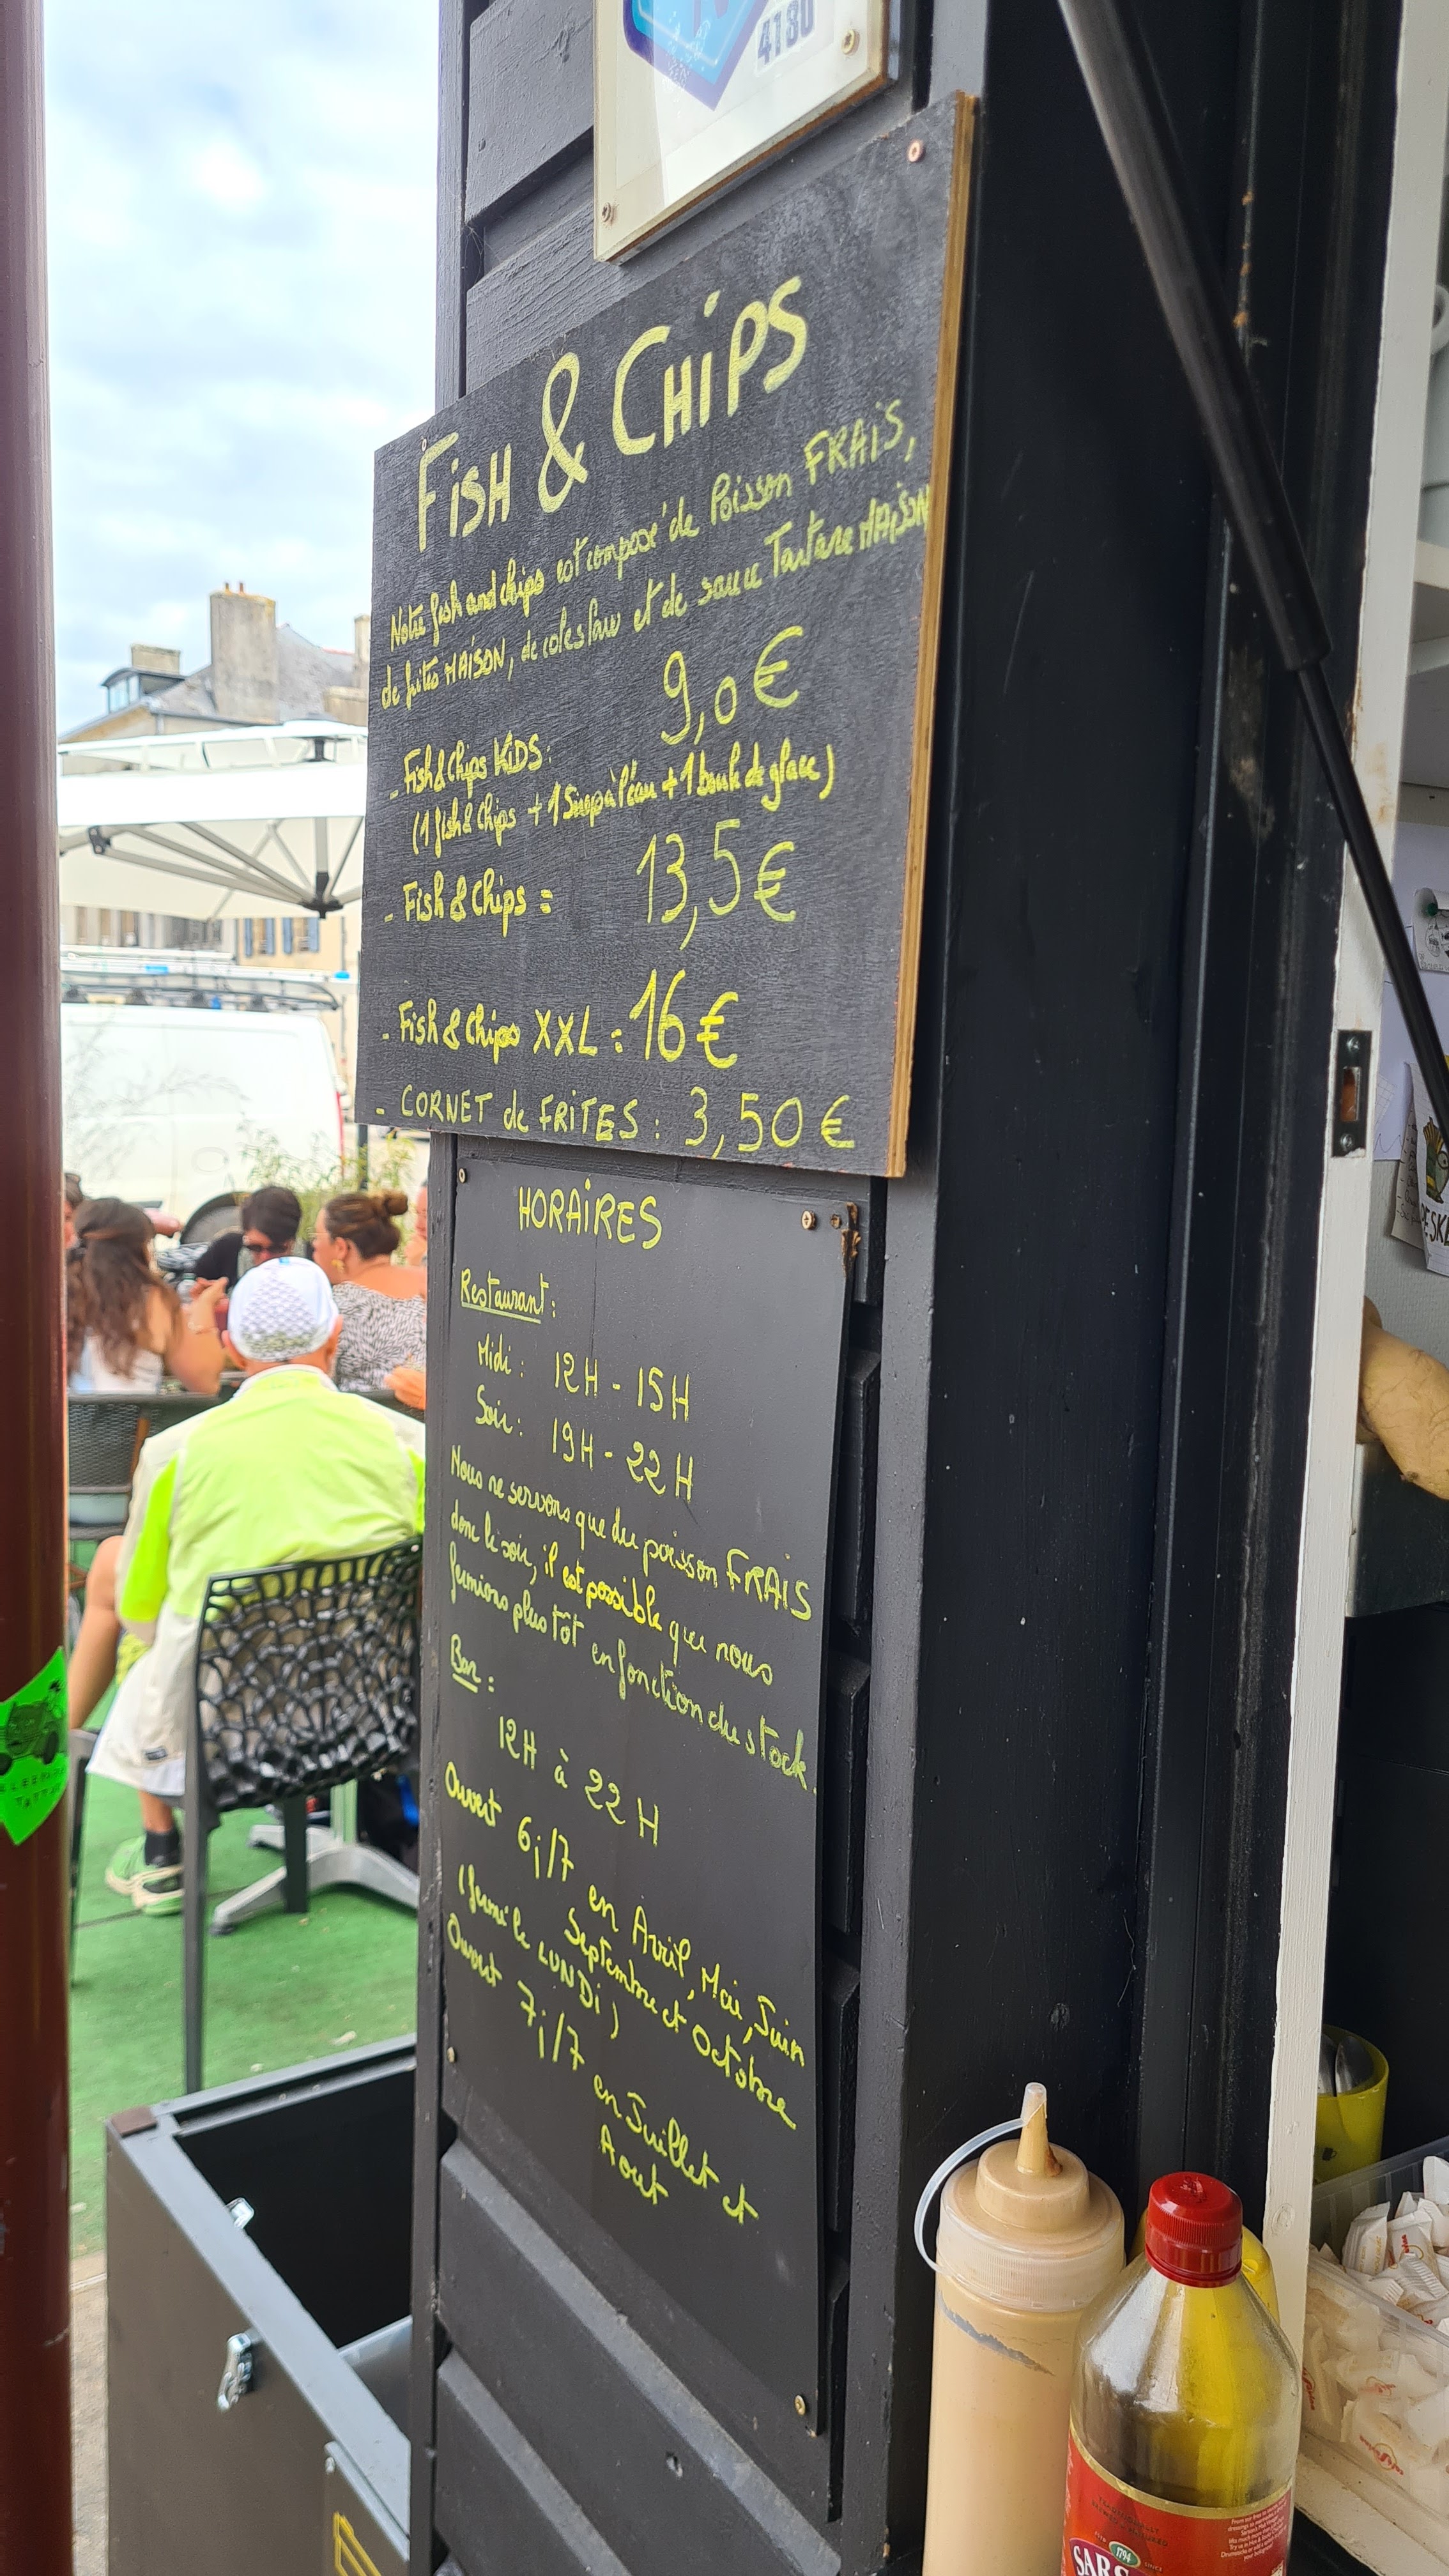 4180
FiSH & CHiPS
Notre fish and chips est composé de Poisson FRAiS,
de frites MAiSON, de coleslaw et de sauce Tartare MAiSON
9,0€
- Fish & Chips KiDS:
(1 fish & Chips + 1 Sirop à l'eau + 1 boule de glace)
- Fish & Chips = 13,5€
- Fish & Chips XXL : 16€
- CORNET de FRiTES : 3,50 €
HORAiRES
Restaurant :
Midi : 12H - 15H
Soir : 19H - 22H
Nous ne servons que du poisson FRAIS
donc le soir, il est possible que nous
fermions plus tôt en fonction du stock.
Bar :
12H à 22H
Ouvert 6j/7 en Avril, Mai, Juin
Septembre et Octobre
(fermé le LUNDi)
Ouvert 7j/7 en Juillet et
Aout
1794
SARS